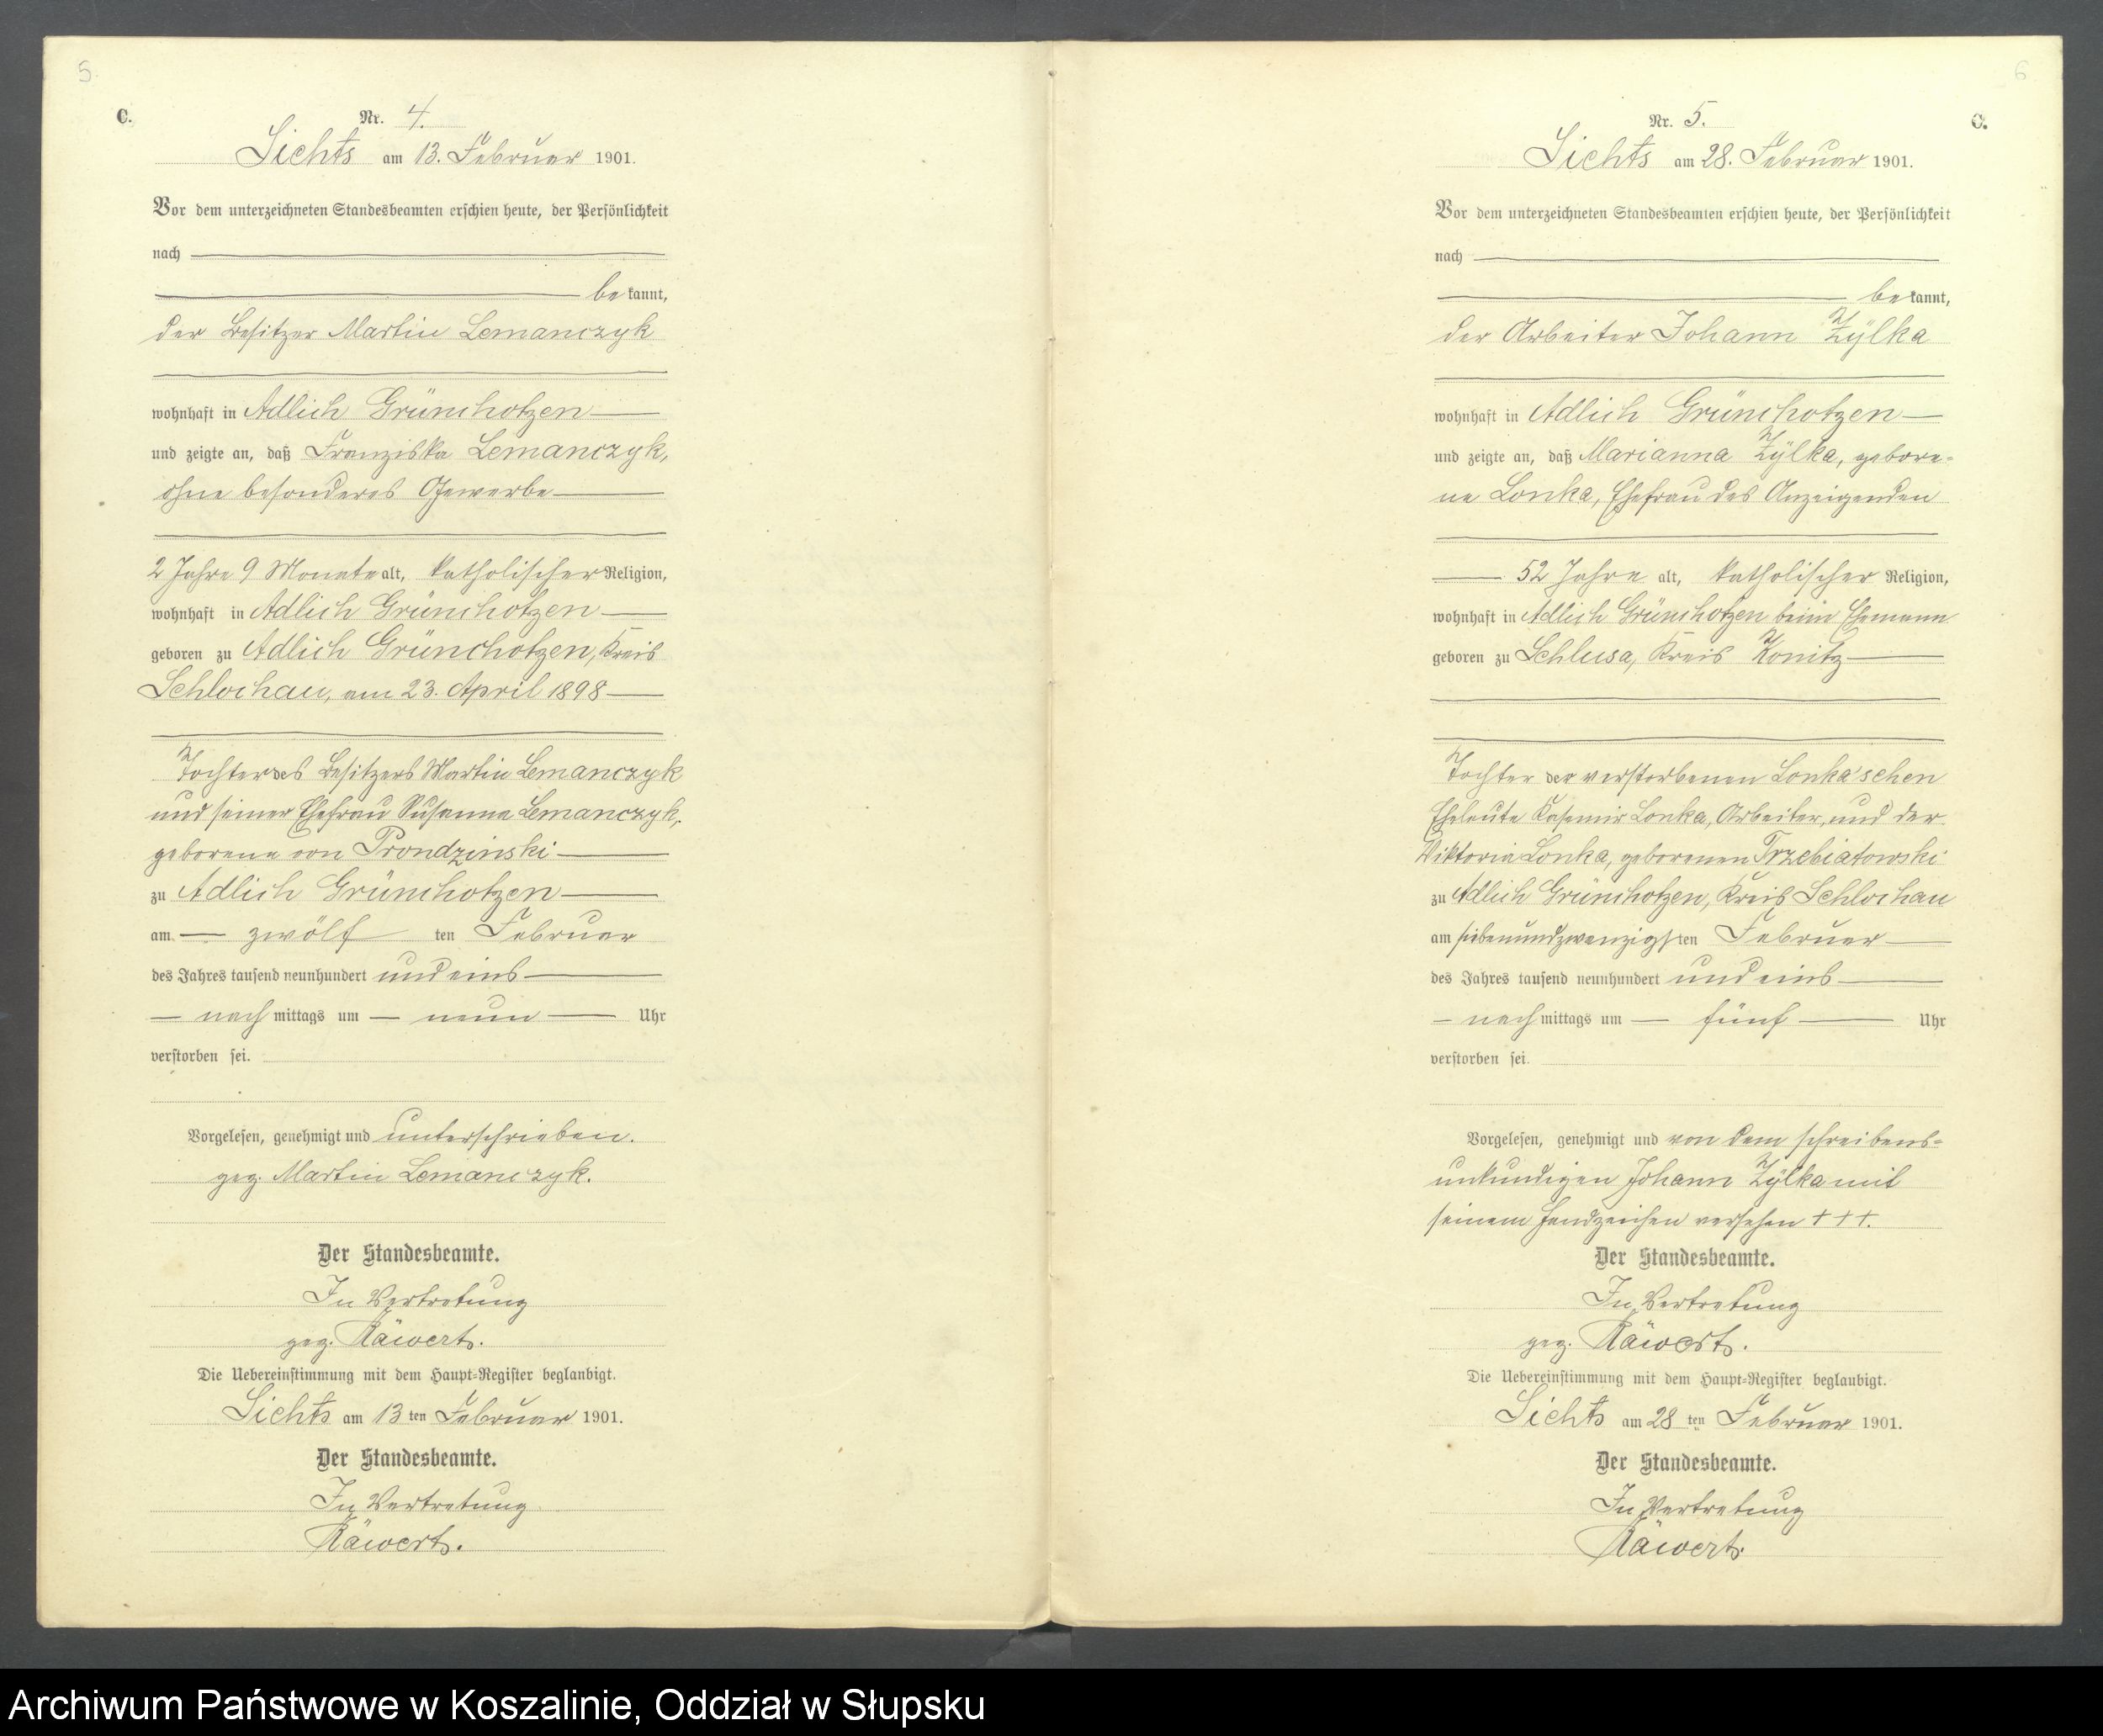 5.
C.
Nr. 4.
Lichts am 13. Februar 1901.
Vor dem unterzeichneten Standesbeamten erschien heute, der Persönlichkeit
nach
bekannt,
der Besitzer Martin Lemanczyk
wohnhaft in Adlich Grünchotzen
und zeigte an, daß Franziska Lemanczyk,
ohne besonderes Gewerbe
2 Jahre 9 Monate alt, katholischer Religion,
wohnhaft in Adlich Grünchotzen
geboren zu Adlich Grünchotzen, Kreis
Schlochau, am 23. April 1898
Tochter des Besitzers Martin Lemanczyk
und seiner Ehefrau Susanna Lemanczyk,
geborene von Prondzinski
zu Adlich Grünchotzen
am zwölf ten Februar
des Jahres tausend neunhundert und eins
nach mittags um neun Uhr
verstorben sei.
Vorgelesen, genehmigt und unterschrieben.
gez. Martin Lemanczyk.
Der Standesbeamte.
In Vertretung
gez. Räwert.
Die Uebereinstimmung mit dem Haupt-Register beglaubigt.
Lichts am 13 ten Februar 1901.
Der Standesbeamte.
In Vertretung
Räwert.
6
C.
Nr. 5.
Lichts am 28. Februar 1901.
Vor dem unterzeichneten Standesbeamten erschien heute, der Persönlichkeit
nach
bekannt,
der Arbeiter Johann Zÿlka
wohnhaft in Adlich Grünchotzen
und zeigte an, daß Marianna Zÿlka, gebore-
ne Lonka, Ehefrau des Anzeigenden
52 Jahre alt, katholischer Religion,
wohnhaft in Adlich Grünchotzen beim Ehemann
geboren zu Schlusa, Kreis Konitz
Tochter der verstorbenen Lonka'schen
Eheleute Kasemir Lonka, Arbeiter, und der
Viktoria Lonka, geborenen Trzebiatowski
zu Adlich Grünchotzen, Kreis Schlochau
am siebenundzwanzigsten Februar
des Jahres tausend neunhundert und eins
nach mittags um fünf Uhr
verstorben sei.
Vorgelesen, genehmigt und von dem schreibens-
unkundigen Johann Zÿlka mit
seinem Handzeichen versehen +++.
Der Standesbeamte.
In Vertretung
gez. Räwert.
Die Uebereinstimmung mit dem Haupt-Register beglaubigt.
Lichts am 28 ten Februar 1901.
Der Standesbeamte.
In Vertretung
Räwert.
Archiwum Państwowe w Koszalinie, Oddział w Słupsku